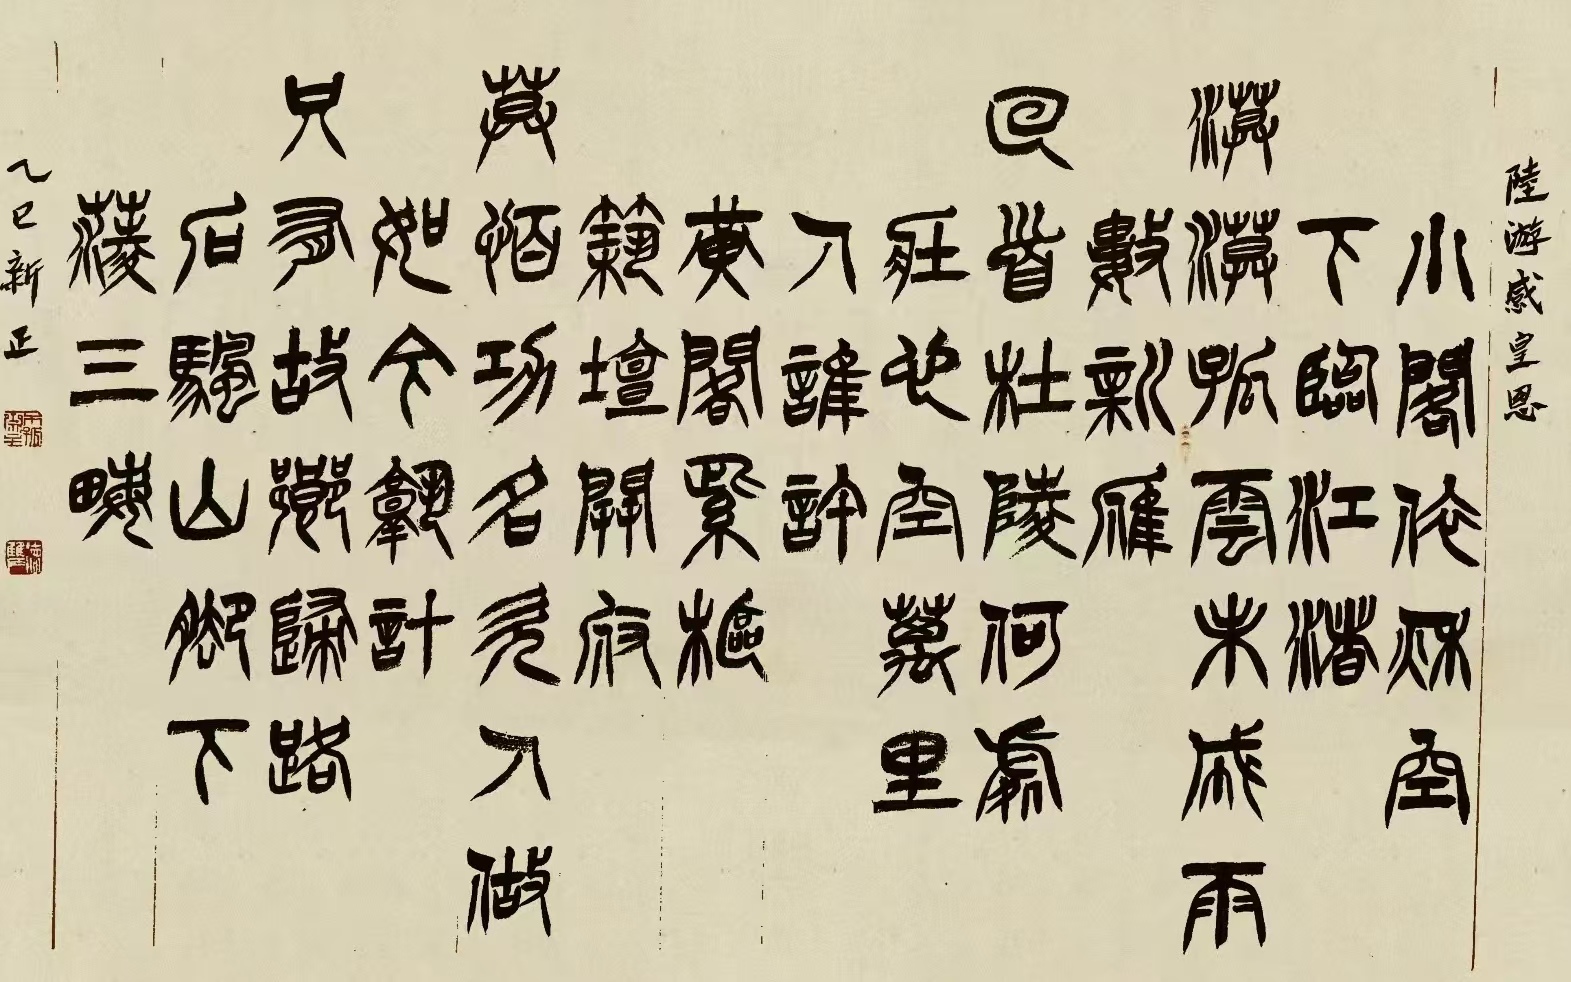 陸游感皇恩
小閣依秋空
下臨江渚
漠漠孤雲未成雨
數新雁
回首杜陵何處
壯心空萬里
人誰許
黃閣紫樞
築壇開府
莫怕功名欠人做
如今熟計
只有故鄉歸路
石颿山腳下
蔆三畮
乙巳新正